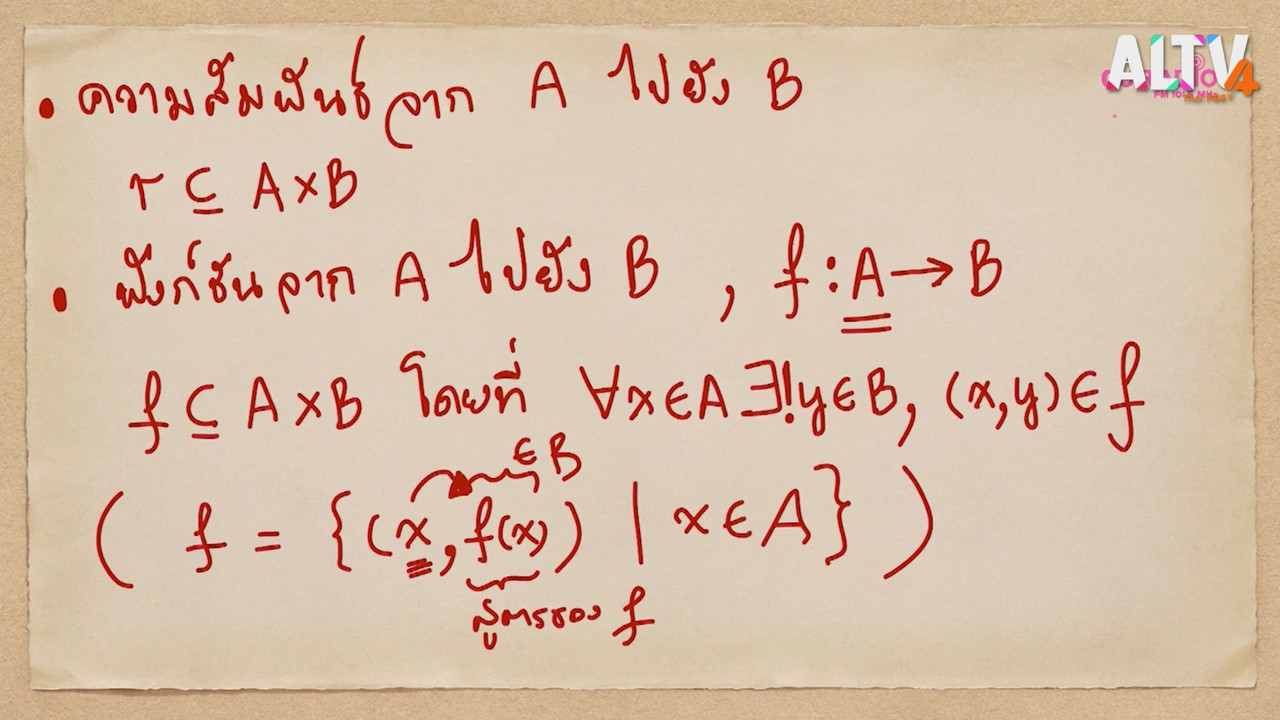 • ความสัมพันธ์จาก A ไปยัง B
r ⊆ A×B
• ฟังก์ชันจาก A ไปยัง B , f : A → B
f ⊆ A×B โดยที่ ∀x∈A ∃!y∈B, (x,y)∈f
∈B
( f = {(x, f(x)) | x∈A} )
สูตรของ f
ALTV4